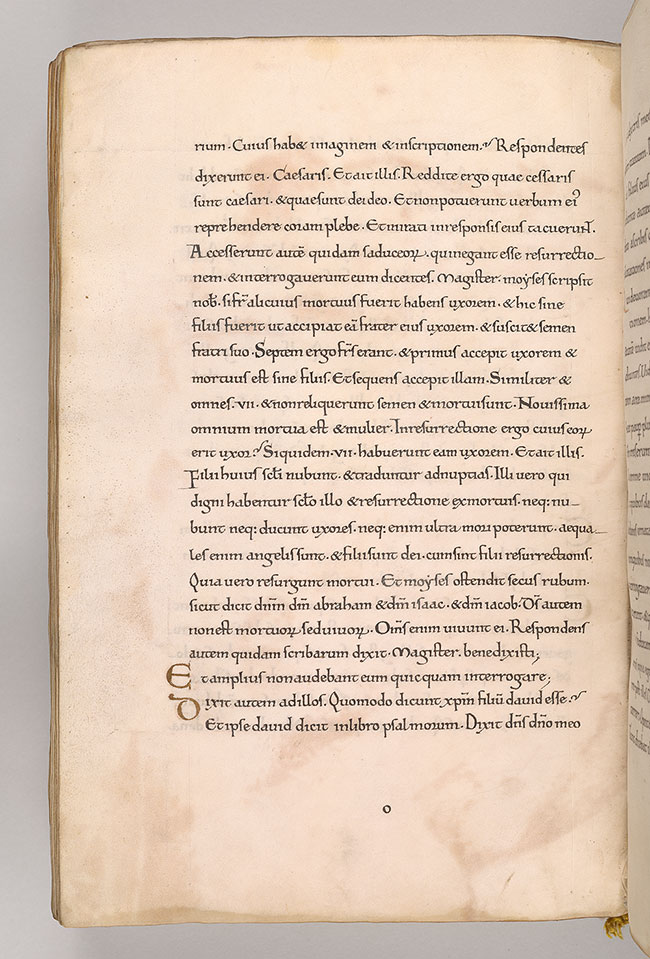 rium. Cuius hab& imaginem & inscriptionem. Respondentes
dixerunt ei. Caesaris. Et ait illis. Reddite ergo quae cessaris
sunt caesari. & quae sunt dei deo. Et non potuerunt uerbum ei᾽
reprehendere coram plebe. Et mirati in responsis eius tacuerunt̄.
Accesserunt autē quidam saduceoꝝ. qui negant esse resurrectio-
nem. & interrogauerunt eum dicentes. Magister. moyses scripsit
nob̄. si fr̄ alicuius mortuus fuerit habens uxorem. & hic sine
filiis fuerit ut accipiat eā frater eius uxorem. & suscit& semen
fratri suo. Septem ergo fr̄s erant. & primus accepit uxorem &
mortuus est sine filiis. Et sequens accepit illam. Similiter &
omnes. vii. & non reliquerunt semen & mortui sunt. Nouissima
omnium mortua est & mulier. In resurrectione ergo cuius eoꝝ
erit uxor. Si quidem. vii. habuerunt eam uxorem. Et ait illis.
Filii huius sc̄li nubunt. & traduntur ad nuptias. Illi uero qui
digni habentur sc̄lo illo & resurrectione ex mortuis. neq: nu-
bunt neq: ducunt uxores. neq: enim ultra mori poterunt. aequa-
les enim angelis sunt. & filii sunt dei. cum sint filii resurrectionis.
Quia uero resurgunt mortui. Et moyses ostendit secus rubum.
sicut dicit dn̄m dm̄ abraham & dm̄ isaac. & dm̄ iacob. Ds̄ autem
non est mortuoꝝ sed uiuoꝝ. Om̄s enim uiuunt ei. Respondens
autem quidam scribarum dixit. Magister. benedixisti;
Et amplius non audebant eum quicquam interrogare;
Dixit autem ad illos. Quomodo dicunt xpm̄ filiū dauid esse.
Et ipse dauid dicit in libro psalmorum. Dixit dn̄s dn̄o meo
o